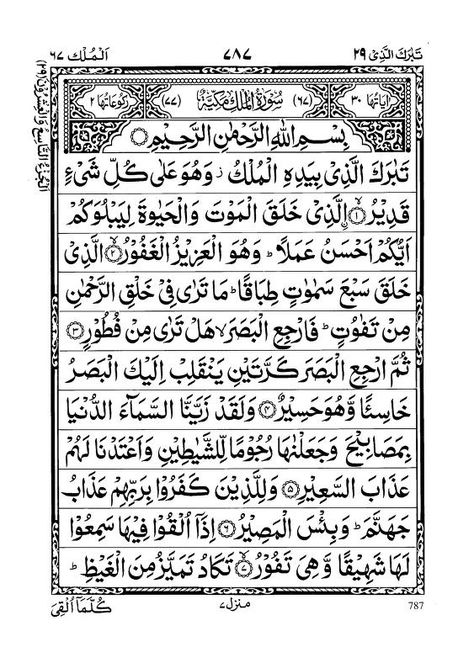 تَبٰرَكَ الَّذِیْ ٢٩
٧٨٧
اَلْمُلْك ٦٧
اٰیَاتُهَا ٣٠
(٦٧) سُوْرَةُ الْمُلْكِ مَكِّیَّةٌ (٧٧)
رُكُوْعَاتُهَا ٢
بِسْمِ اللّٰهِ الرَّحْمٰنِ الرَّحِیْمِ
تَبٰرَكَ الَّذِیْ بِیَدِهِ الْمُلْكُ ز وَهُوَ عَلٰی كُلِّ شَیْءٍ
قَدِیْرُ ۙ﴿١﴾ ۨالَّذِیْ خَلَقَ الْمَوْتَ وَالْحَیٰوةَ لِیَبْلُوَكُمْ
اَیُّكُمْ اَحْسَنُ عَمَلًا ؕ وَهُوَ الْعَزِیْزُ الْغَفُوْرُ ۙ﴿٢﴾ الَّذِیْ
خَلَقَ سَبْعَ سَمٰوٰتٍ طِبَاقًا ؕ مَا تَرٰی فِیْ خَلْقِ الرَّحْمٰنِ
مِنْ تَفٰوُتٍ ؕ فَارْجِعِ الْبَصَرَ ۙ هَلْ تَرٰی مِنْ فُطُوْرٍ ﴿٣﴾
ثُمَّ ارْجِعِ الْبَصَرَ كَرَّتَیْنِ یَنْقَلِبْ اِلَیْكَ الْبَصَرُ
خَاسِئًا وَّهُوَ حَسِیْرٌ ﴿٤﴾ وَلَقَدْ زَیَّنَّا السَّمَآءَ الدُّنْیَا
بِمَصَابِیْحَ وَجَعَلْنٰهَا رُجُوْمًا لِّلشَّیٰطِیْنِ وَاَعْتَدْنَا لَهُمْ
عَذَابَ السَّعِیْرِ ﴿٥﴾ وَلِلَّذِیْنَ كَفَرُوْا بِرَبِّهِمْ عَذَابُ
جَهَنَّمَ ؕ وَبِئْسَ الْمَصِیْرُ ﴿٦﴾ اِذَاۤ اُلْقُوْا فِیْهَا سَمِعُوْا
لَهَا شَهِیْقًا وَّهِیَ تَفُوْرُ ۙ﴿٧﴾ تَكَادُ تَمَیَّزُ مِنَ الْغَیْظِ ؕ
كُلَّمَاۤ اُلْقِیَ
منزل ٧
787
اَلْجُزْءُ التَّاسِعُ وَالْعِشْرُوْنَ (٢٩)